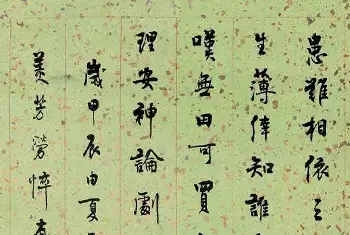 患難相依三
生薄倖知誰
嘆無由可買
理安神論劇
歲甲辰由夏
美芳勞悴